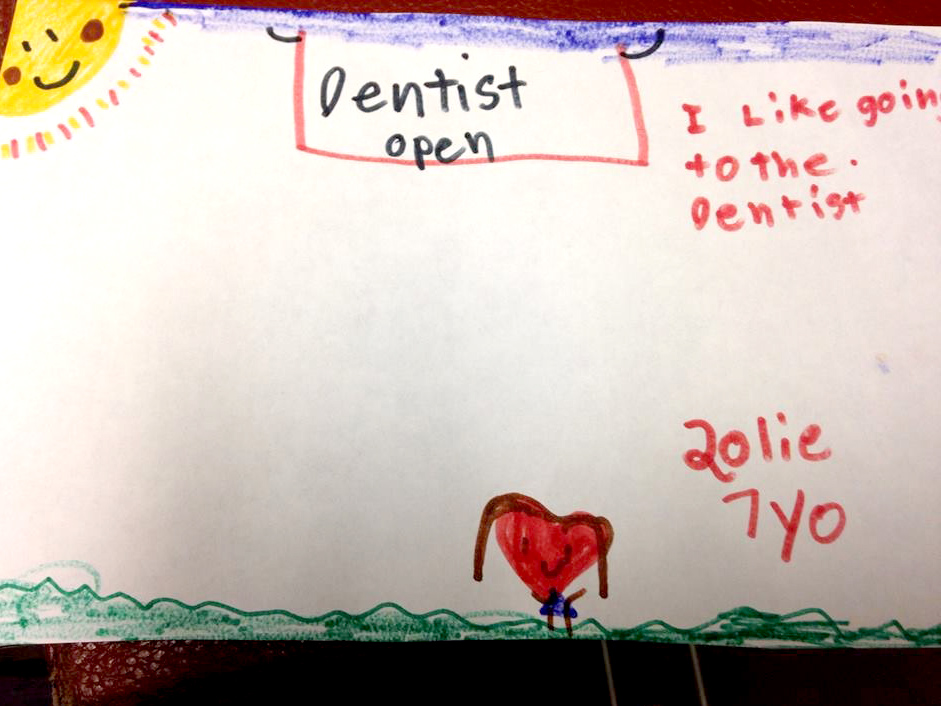 Dentist
open
I Like going
to the.
Dentist
2olie
7yo